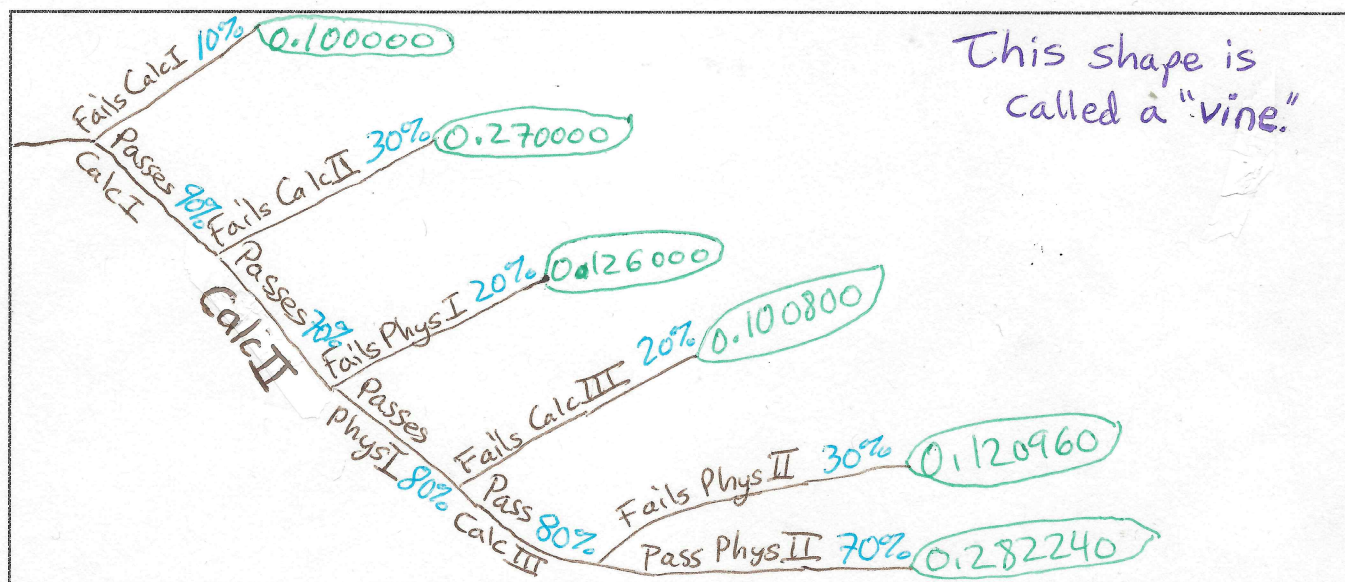 This shape is
called a "vine."
Fails Calc I 10% 0.100000
Passes 90%
Calc I
Fails Calc II 30% 0.270000
Passes 70%
Calc II
Fails Phys I 20% 0.126000
Passes
Phys I 80%
Fails Calc III 20% 0.100800
Pass 80%
Calc III
Fails Phys II 30% 0.120960
Pass Phys II 70% 0.282240